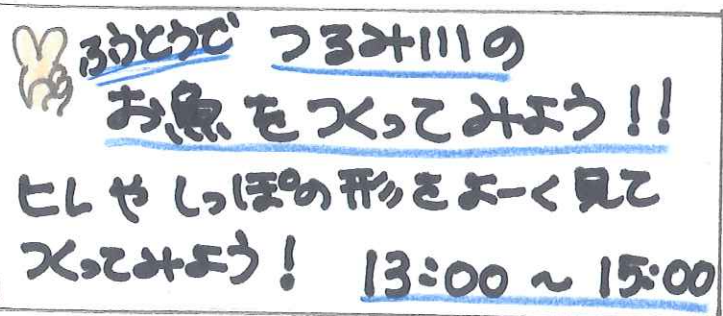 ふうとうで つるみ川の
お魚をつくってみよう!!
ヒレやしっぽの形をよーく見て
つくってみよう! 13:00 ~ 15:00